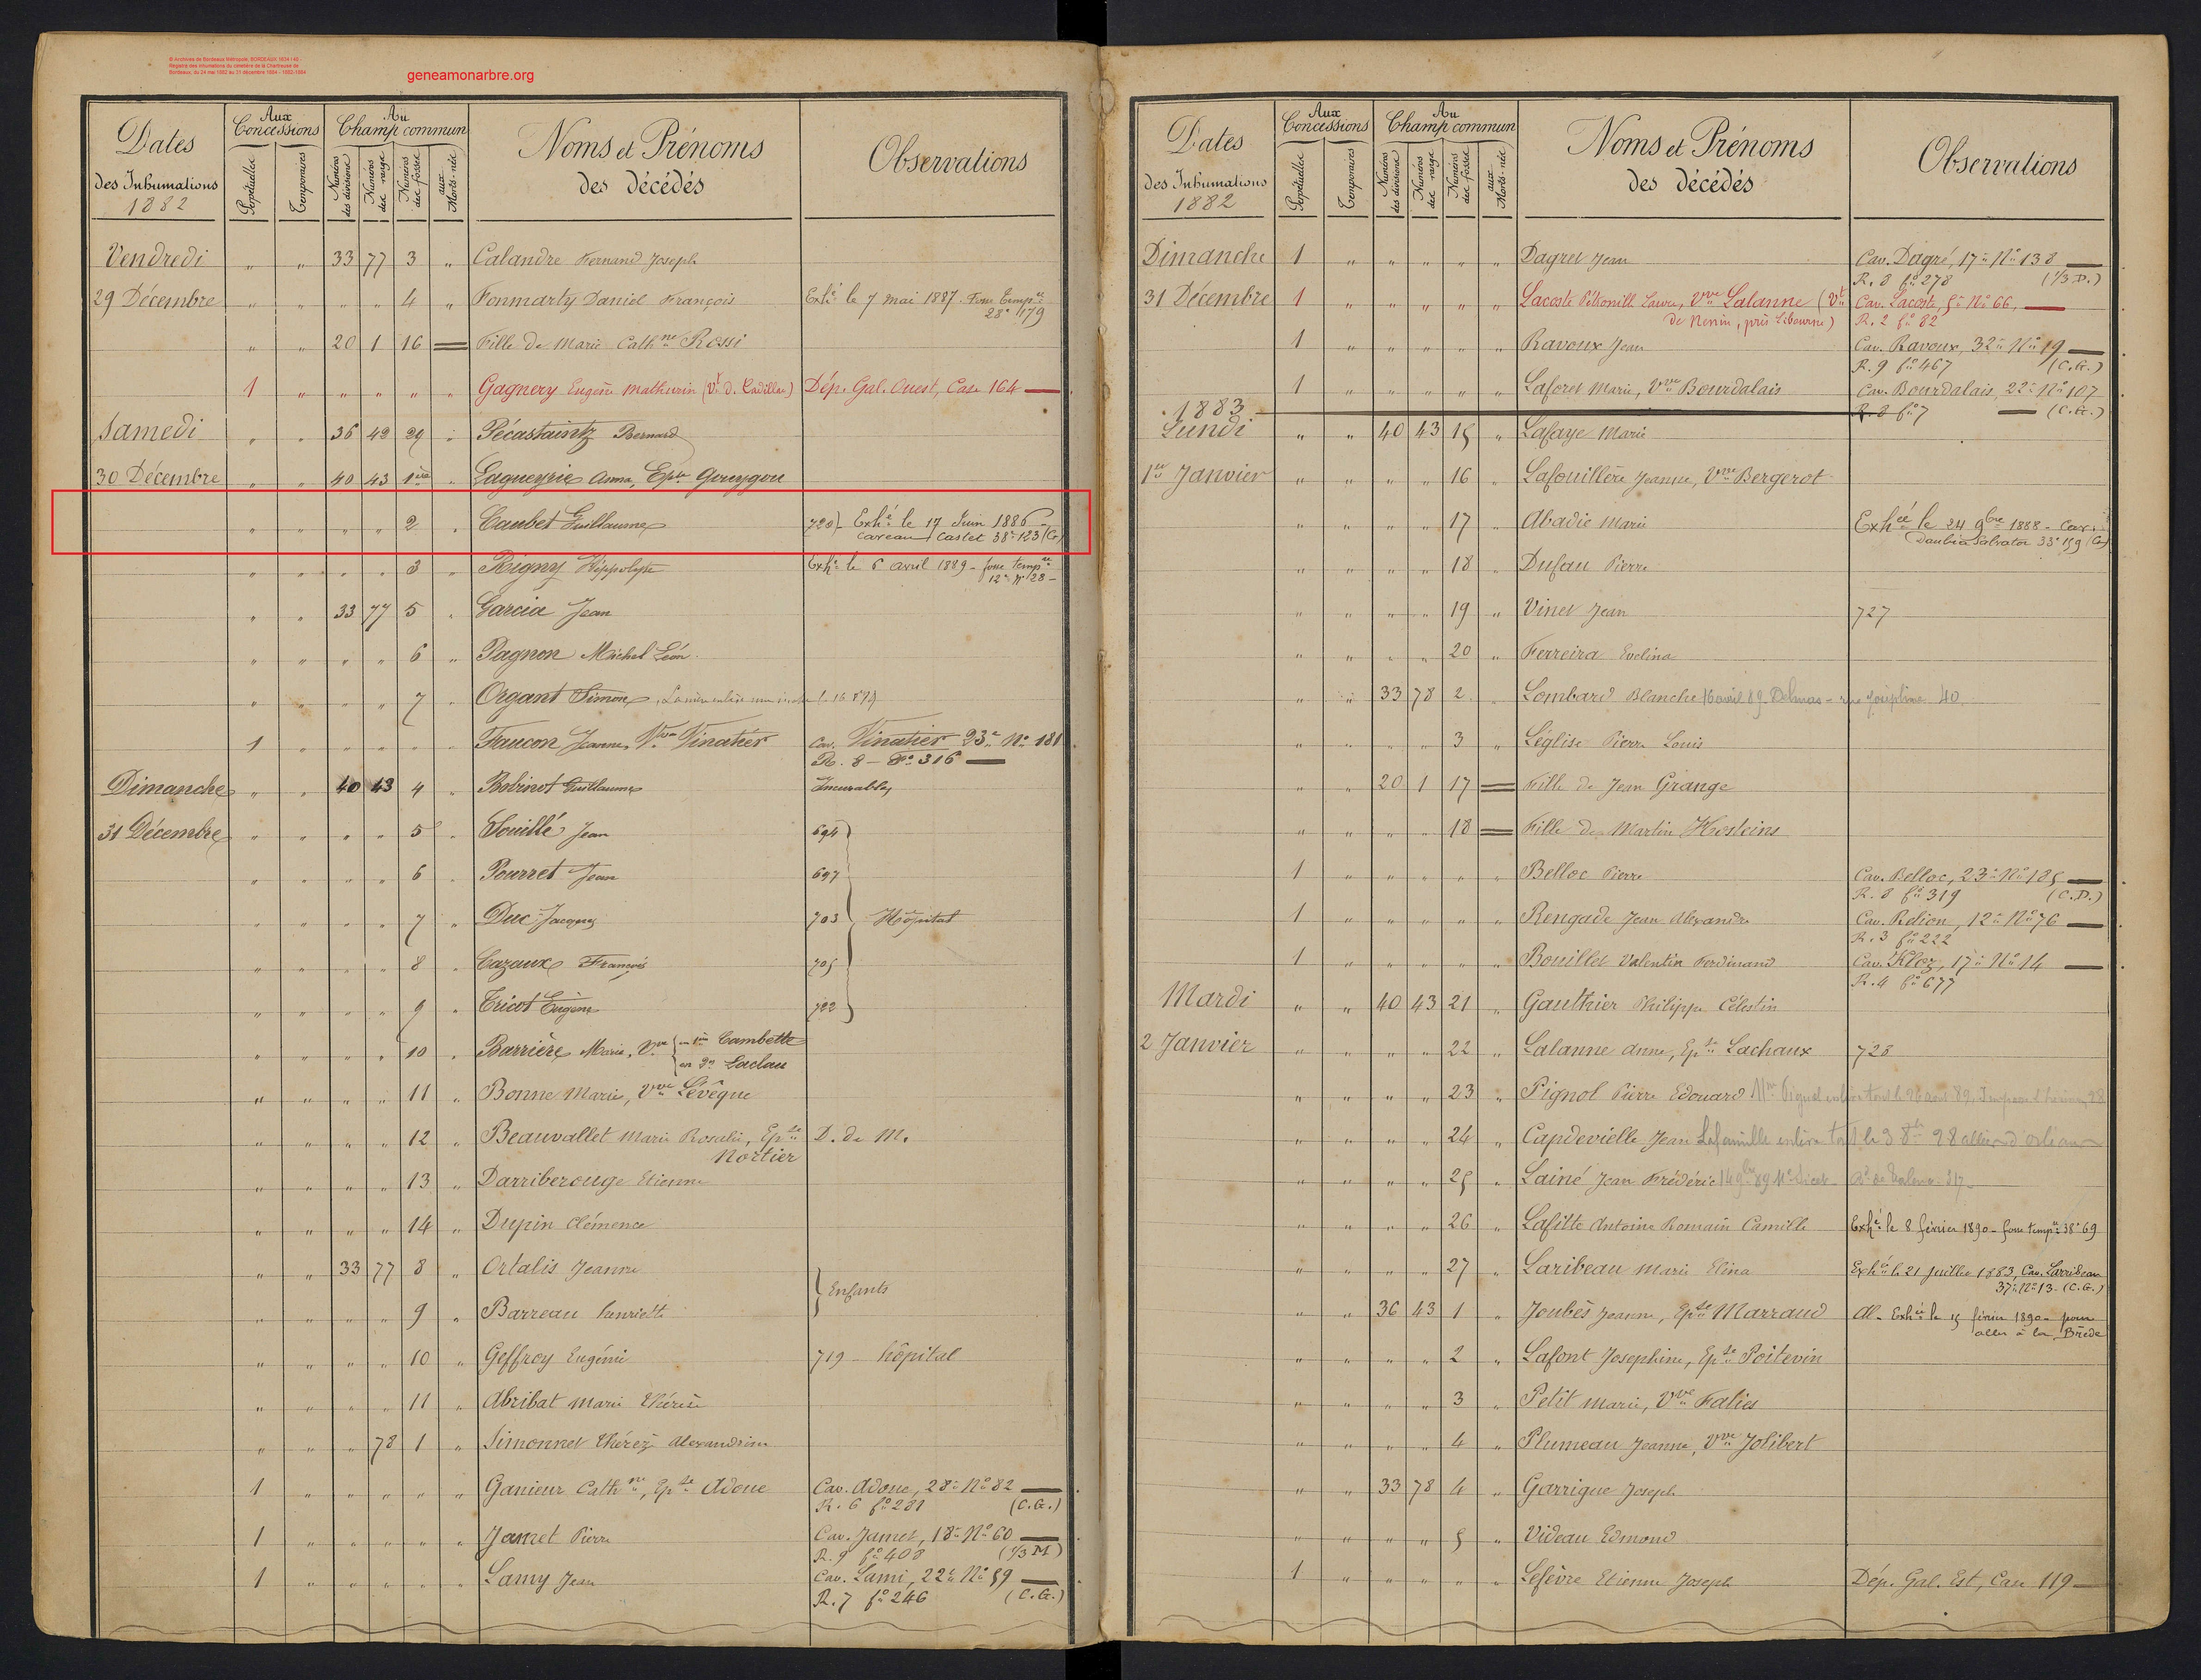 © Archives de Bordeaux Métropole, BORDEAUX 1634 I 40 -
Registre des inhumations du cimetière de la Chartreuse de
Bordeaux, du 24 mai 1882 au 31 décembre 1884 - 1882-1884
geneamonarbre.org
Dates
des Inhumations
1882
Aux Concessions
Perpétuelles
Temporaires
Au Champ commun
Numéros des divisions
Numéros des rangs
Numéros des fosses
aux Morts-nés
Noms et Prénoms
des décédés
Observations
Vendredi " " 33 77 3 " Calandre Fernand Joseph
29 Décembre " " " " 4 " Fonmarty Daniel François Exhé le 7 mai 1887. Fosse tempre
28e 179
" " 20 1 16 = Fille de Marie Cathne Rossi
1 " " " " " Gagnery Eugène Mathurin (Vt de Cadillac) Dép. Gal. Ouest, Case 164 —
Samedi " " 36 42 29 " Pécastaintz Bernard
30 Décembre " " 40 43 1ère " Lagueyrie Anna, Epse Gouygou
" " " " 2 " Caubet Guillaume 720 - Exhé le 17 Juin 1886 -
caveau Castet 38e 123 (G)
" " " " 3 " Rigny Hippolyte Exhé le 6 avril 1889 - fosse tempre
12e No 28 -
" " 33 77 5 " Garcia Jean
" " " " 6 " Pagnon Michel Léon
" " " " 7 " Organt Simon
1 " " " " " Faucon Jeanne, Vve Vinatier Cav. Vinatier 23e No 181
R. 8 - fo 316 —
Dimanche " " 40 43 4 " Bobinot Guillaume Incurables
31 Décembre " " " " 5 " Souillé Jean 694
" " " " 6 " Pourret Jean 697
" " " " 7 " Duc Jacques 703 Hôpital
" " " " 8 " Cazaux François 705
" " " " 9 " Tricot Eugène 722
" " " " 10 " Barrière Marie, Vve en 1es Cambette
en 2es Laclau
" " " " 11 " Bonne Marie, Vve Lévêque
" " " " 12 " Beauvallet Marie Rosalie, Epse D. de M.
Nortier
" " " " 13 " Darriberouge Etienne
" " " " 14 " Dupin Clémence
" " 33 77 8 " Ortalis Jeanne
Enfants
" " " " 9 " Barreau Henriette
" " " " 10 " Geffroy Eugénie 719 - hôpital
" " " " 11 " Abribat Marie Thérèse
" " " 78 1 " Simonnet Thérèze Alexandrine
1 " " " " " Ganieur Cathne, Epse Adoue Cav. Adoue, 28e No 82 —
R. 6 fo 281 (C.G.)
1 " " " " " Jamet Pierre Cav. Jamet, 18e No 60 —
R. 9 fo 408 (1/3 M)
1 " " " " " Lamy Jean Cav. Lami, 22e No 59 —
R. 7 fo 246 (C.G.)
Dates
des Inhumations
1882
Aux Concessions
Perpétuelles
Temporaires
Au Champ commun
Numéros des divisions
Numéros des rangs
Numéros des fosses
aux Morts-nés
Noms et Prénoms
des décédés
Observations
Dimanche 1 " " " " " Dagret Jean Cav. Dagré, 17e No 138 —
R. 8 fo 278 (1/3 D.)
31 Décembre 1 " " " " " Lacoste Pétronille Laure, Vve Lalanne (Vt Cav. Lacoste, 5e No 66, —
de Nérin, près Libourne) R. 2 fo 82
1 " " " " " Ravoux Jean Cav. Ravoux, 32e No 19 —
R. 9 fo 467 (C.G.)
1 " " " " " Laforet Marie, Vve Bourdalais Cav. Bourdalais, 22e No 107
R. 8 fo 7 — (C.G.)
1883
Lundi " " 40 43 15 " Lafaye Marie
1er Janvier " " " " 16 " Lafouillère Jeanne, Vve Bergerot
" " " " 17 " Abadie Marie Exhée le 24 9bre 1888 - Cav.
Daubia Salvator 33e 159 (G)
" " " " 18 " Dufau Pierre
" " " " 19 " Vinet Jean 727
" " " " 20 " Ferreira Evelina
" " 33 78 2 " Lombard Blanche 16 avril 89 Delmas - rue Joséphine 40.
" " " " 3 " Léglise Pierre Louis
" " 20 1 17 = Fille de Jean Grange
" " " " 18 = Fille de Martin Hosteins
1 " " " " " Belloc Pierre Cav. Belloc, 23e No 185 —
R. 8 fo 319 (C.D.)
1 " " " " " Rengade Jean Alexandre Cav. Relion, 12e No 76 —
R. 3 fo 222
1 " " " " " Bouillet Valentin Ferdinand Cav. Kloz, 17e No 14 —
R. 4 fo 677
Mardi " " 40 43 21 " Gauthier Philippe Célestin
2 Janvier " " " " 22 " Lalanne Anne, Epse Lachaux 728
" " " " 23 " Pignol Pierre Edouard
" " " " 24 " Capdevielle Jean La famille enlève tout le 3 8bre
" " " " 25 " Lainé Jean Frédéric
" " " " 26 " Lafitte Antoine Romain Camille Exhé le 8 février 1890 - fosse tempre 38e 69
" " " " 27 " Laribeau Marie Elina Exhée le 21 Juillet 1883, Cav. Larribeau
37e No 13 - (C.G.)
" " 36 43 1 " Joubès Jeanne, Epse Marraud Al - Exhée le 15 février 1890 - pour
aller à La Brède
" " " " 2 " Lafont Josephine, Epse Poitevin
" " " " 3 " Petit Marie, Vve Falies
" " " " 4 " Plumeau Jeanne, Vve Jolibert
" " 33 78 4 " Garrigue Joseph
" " " " 5 " Videau Edmond
1 " " " " " Lefèvre Etienne Joseph Dép. Gal. Est, Case 119 —